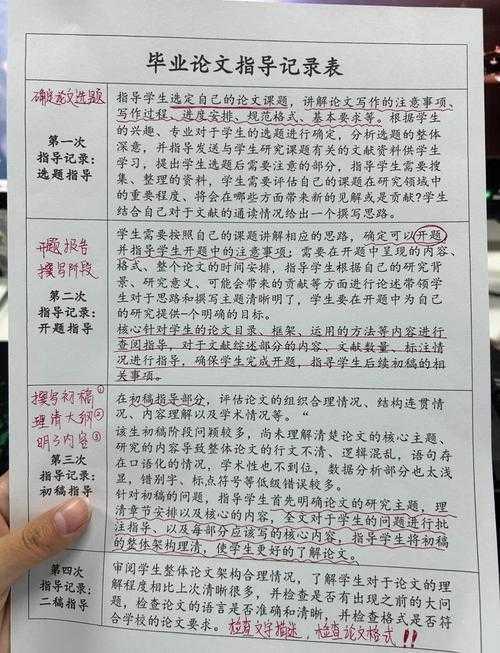 毕业论文指导记录表
确定论文选题
第一次
指导记录:
选题指导
指导学生选定自己的论文课题，讲解论文写作的注意事项、
写作过程、进度安排、规范格式、基本要求等。根据学生
的兴趣、专业对于学生的选题进行确定，分析选题的整体
深意，并指导发送与学生研究课题有关的文献资料供学生
学习，提出学生选题后需要注意的部分，指导学生需要搜
集、整理的资料，学生需要评估自己的课题在研究领域中
的重要程度、将会在哪些方面带来新的见解或是贡献?学生
结合自己对于文献的通读情况给出一个撰写思路。
开题报告
撰写阶段
第二次
指导记录:
开题指导
学生需要按照自己的课题讲解相应的思路，确定可以开题，
并指导学生开题中的注意事项；需要在开题中呈现的内容、
格式、整个论文的时间安排，指导学生根据自己的研究背
景、研究意义、可能会带来的贡献等方面进行论述带领学
生对于思路和撰写主题清晰明了，学生要在开题中为自己
的研究提供一个明确的目标。
核心针对学生的论文目录、框架、运用的方法等内容进行
查阅指导，对于文献综述部分的内容、文献数量、标注情
况进行指导，确保学生完成开题，指导学生后续初稿的相
关事项。
撰写初稿①
理清大纲②
明了内容③
第三次
指导记录:
初稿指导
在初稿指导部分，评估论文的组织合理情况、结构连贯情
况、内容理解以及学术情况等。“
该生初稿阶段问题较多，尚未理解清楚论文的核心主题、
研究的内容导致整体论文的行文不清、逻辑混乱，语句存
在口语化的情况，学术性也不到位，数据分析部分也太浅
显，错别字、标点符号等低级错误较多。
针对初稿的问题，指导学生首先明确论文的研究主题，理
清章节安排以及核心的内容，全文对于学生的问题进行批
注指导、以及每部分应该写的核心内容，指导学生将初稿
的整体架构理清，使学生更好的了解论文。
第四次
指导记录:
二稿指导
审阅学生整体论文架构合理情况，了解学生对于论文的理
解程度相比上次清晰很多，并检查是否有出现之前的大问
题，检查论文的语言是否准确和清晰，并检查格式是否符
合学校的论文要求。检查文字描述，检查论文格式!!